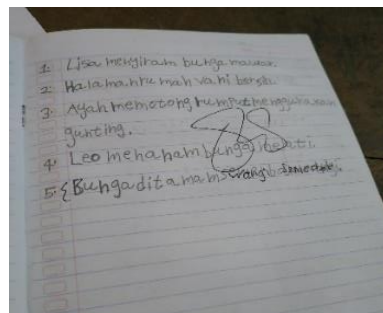 1. Lisa menyiram bunga mawar.
2. Halaman rumah vani bersih.
3. Ayah memotong rumput menggunakan
gunting.
4. Leo menanam bunga melati
5. Bunga ditamam
88